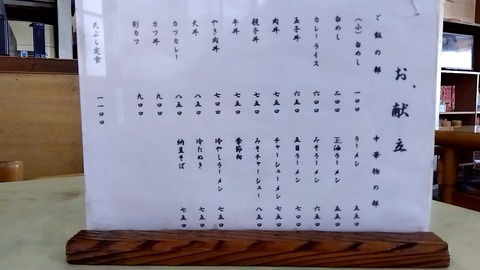 お献立
ご飯の部
(小)白めし 一〇〇
白めし 二〇〇
カレーライス 六〇〇
玉子丼 六五〇
肉丼 七五〇
親子丼 七五〇
牛丼 七五〇
やき肉丼 七〇〇
天丼 八五〇
カツカレー 八五〇
カツ丼 九〇〇
別カツ 九〇〇
天ぷら定食 一一〇〇
中華物の部
ラーメン 五五〇
正油ラーメン 五五〇
みそラーメン 六五〇
五目ラーメン 七五〇
チャーシューメン 七五〇
みそチャーシュー 八五〇
季節向
冷やしラーメン 七五〇
冷たぬき 七五〇
納豆そば 七五〇